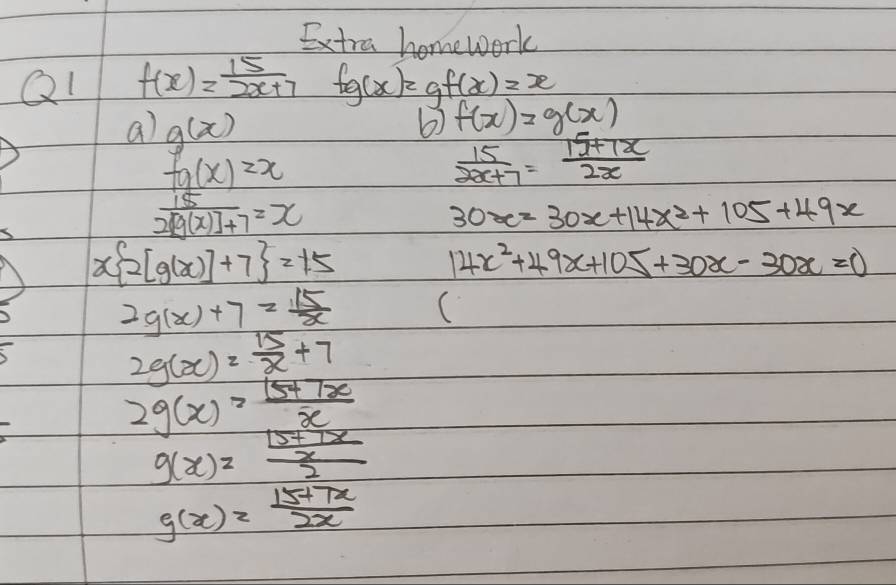 Extra homework
Q1 f(x) = 15/2x+7 fg(x) = gf(x) = x
a) g(x)
fg(x) = x
15/2[g(x)]+7 = x
x{2[g(x)]+7} = 15
2g(x) + 7 = 15/x
2g(x) = 15/x + 7
2g(x) = 15+7x/x
g(x) = 15+7x/x/2
g(x) = 15+7x/2x
b) f(x) = g(x)
15/2x+7 = 15+7x/2x
30x = 30x + 14x² + 105 + 49x
14x² + 49x + 105 + 30x - 30x = 0
(